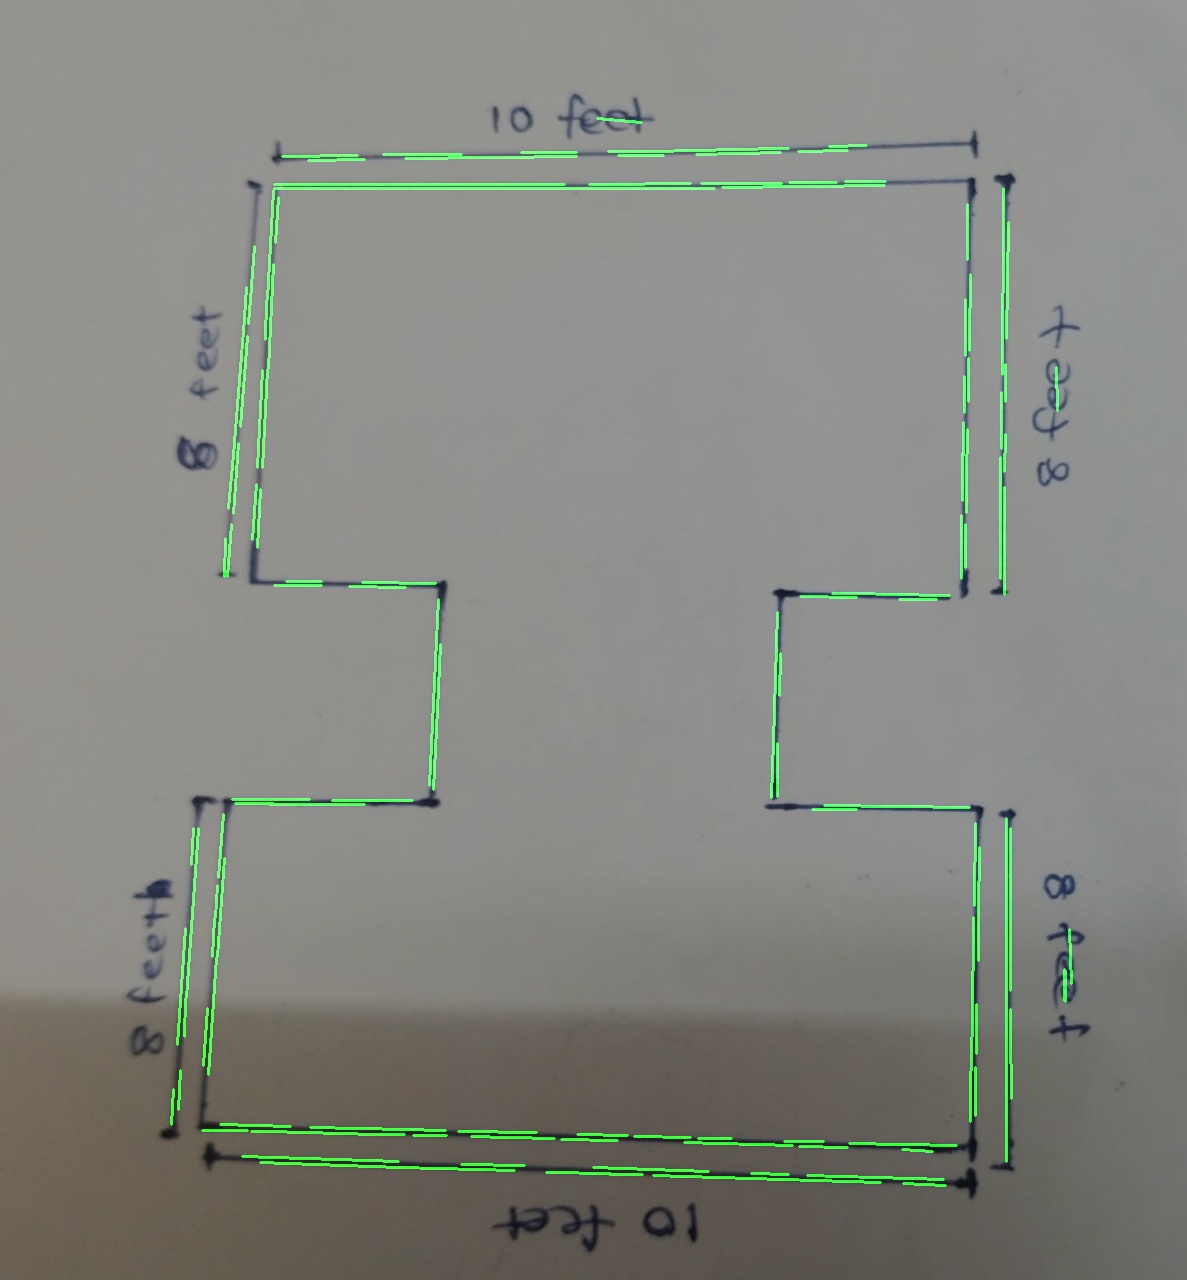 10 feet
8 feet
8 feet
8 feeth
8 feet
10 feet